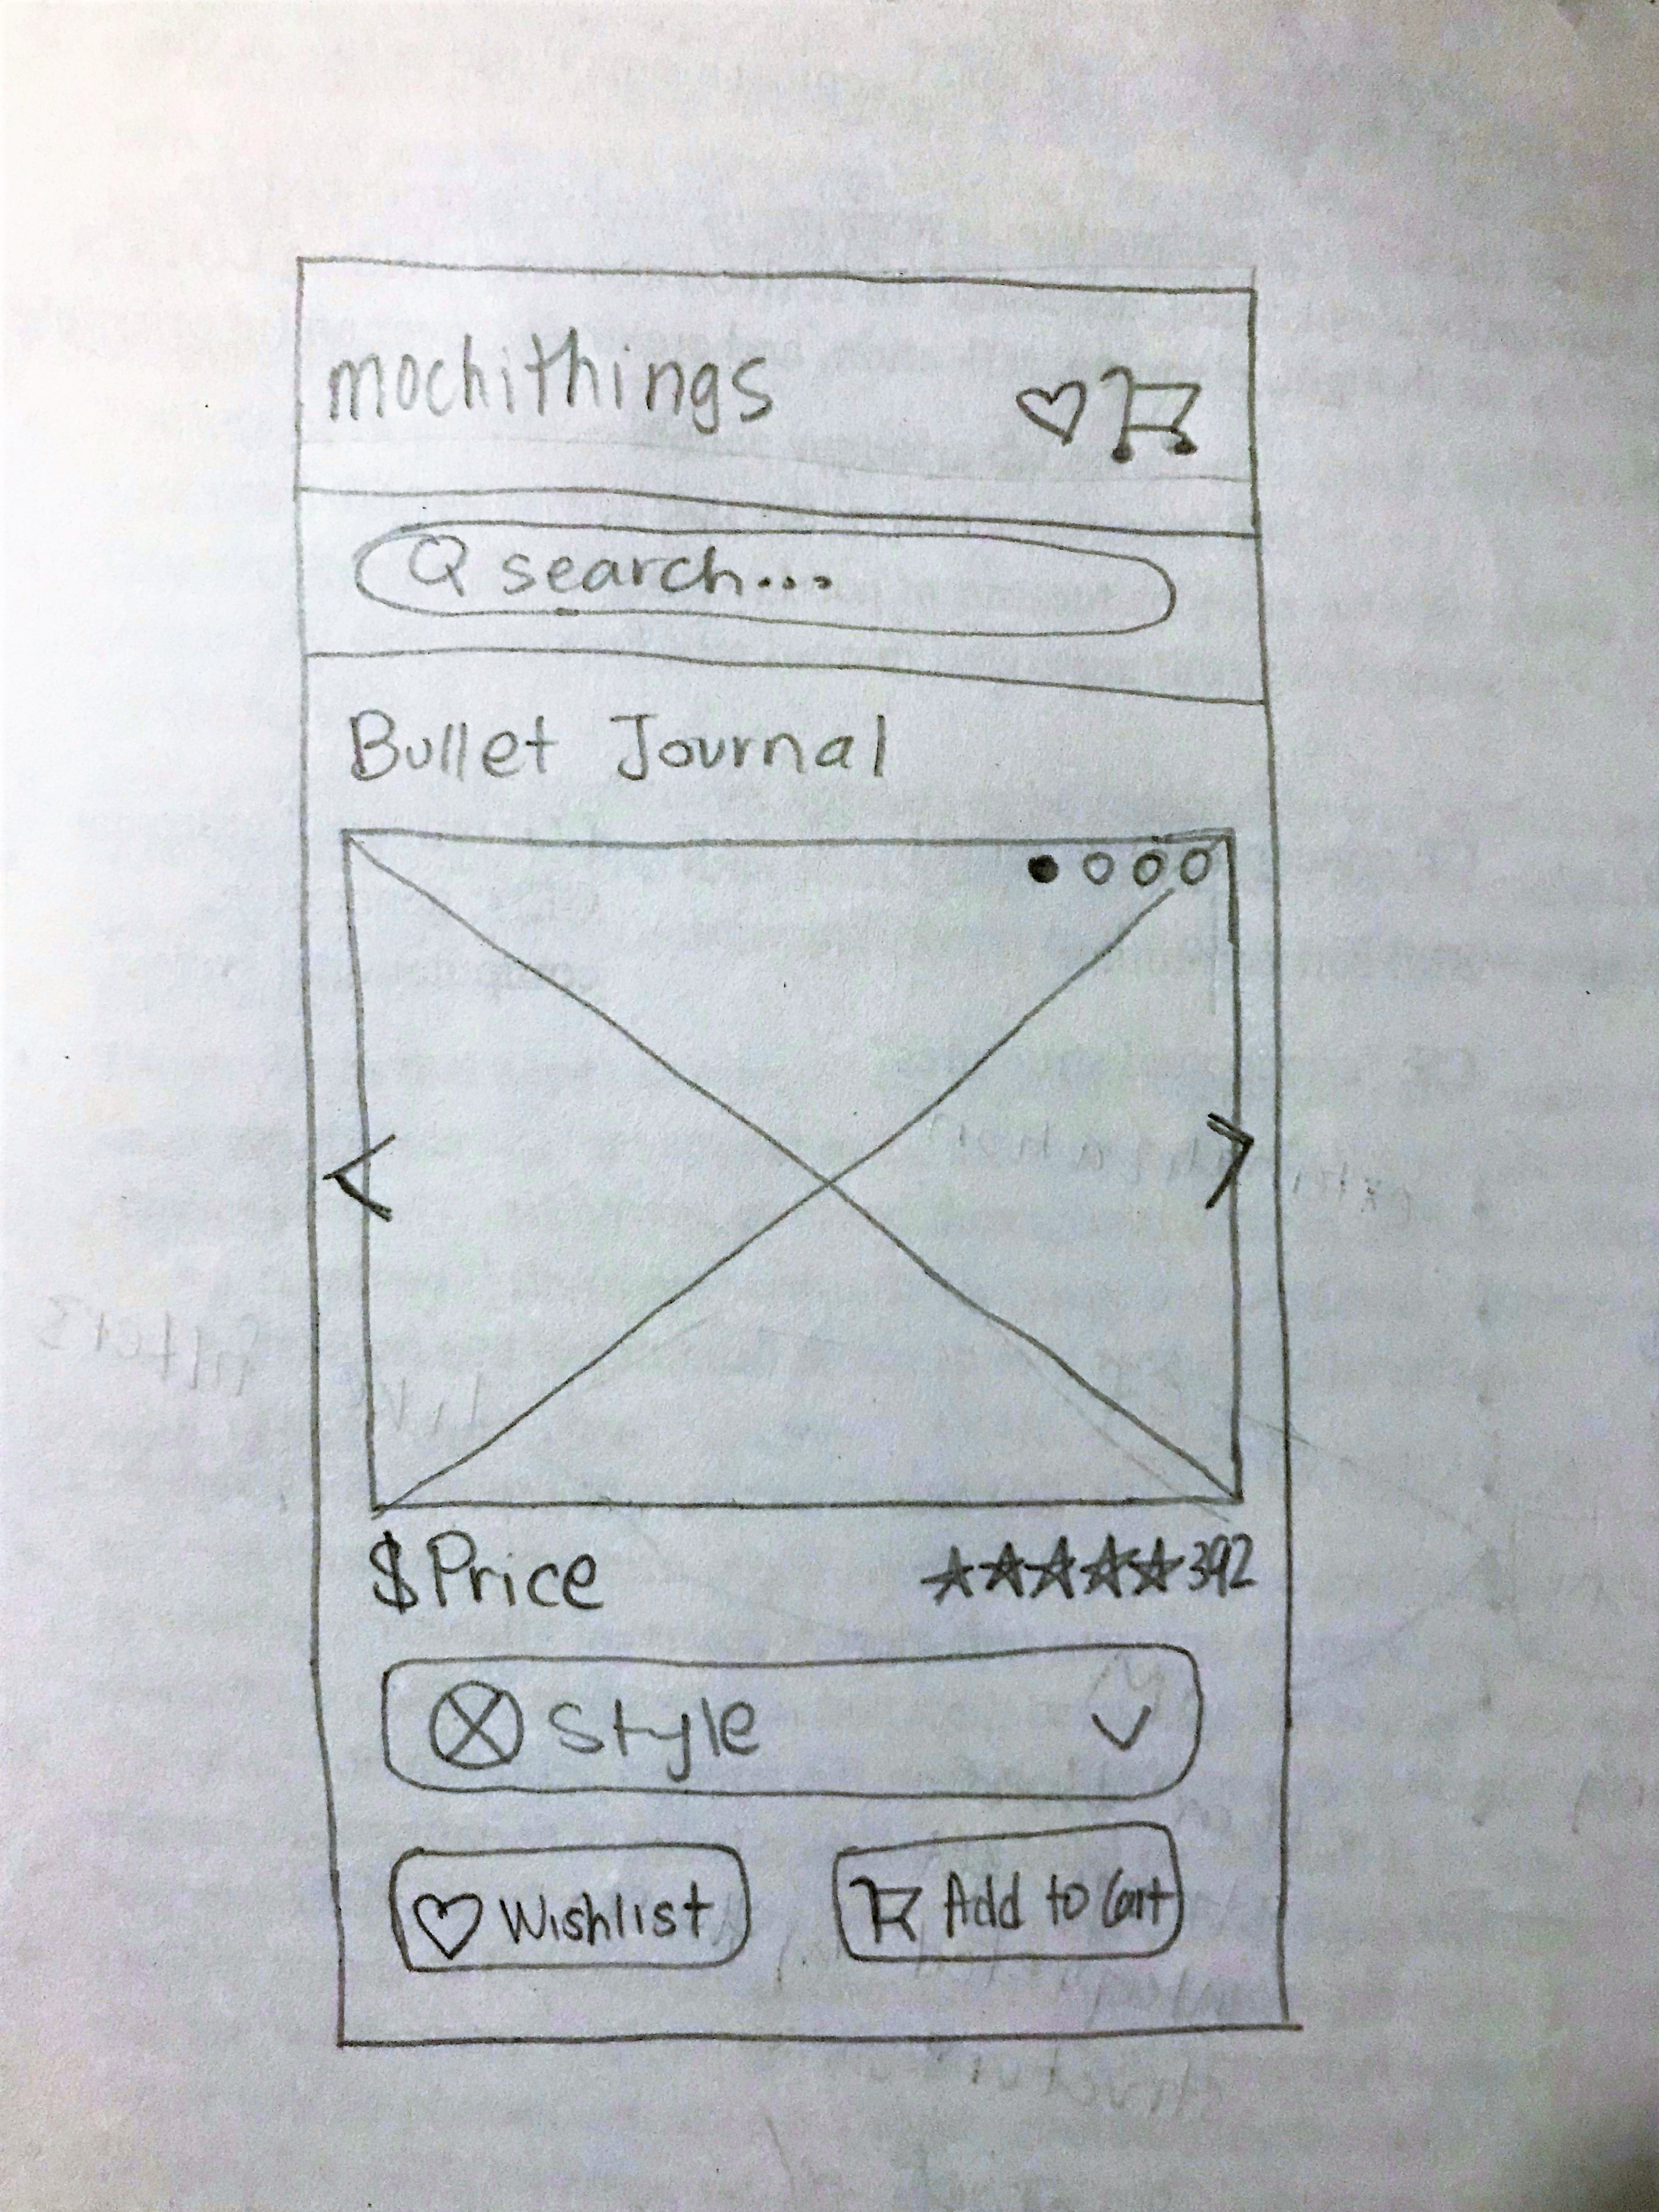 mochithings
search...
Bullet Journal
$Price 392
Style
Wishlist Add to Cart